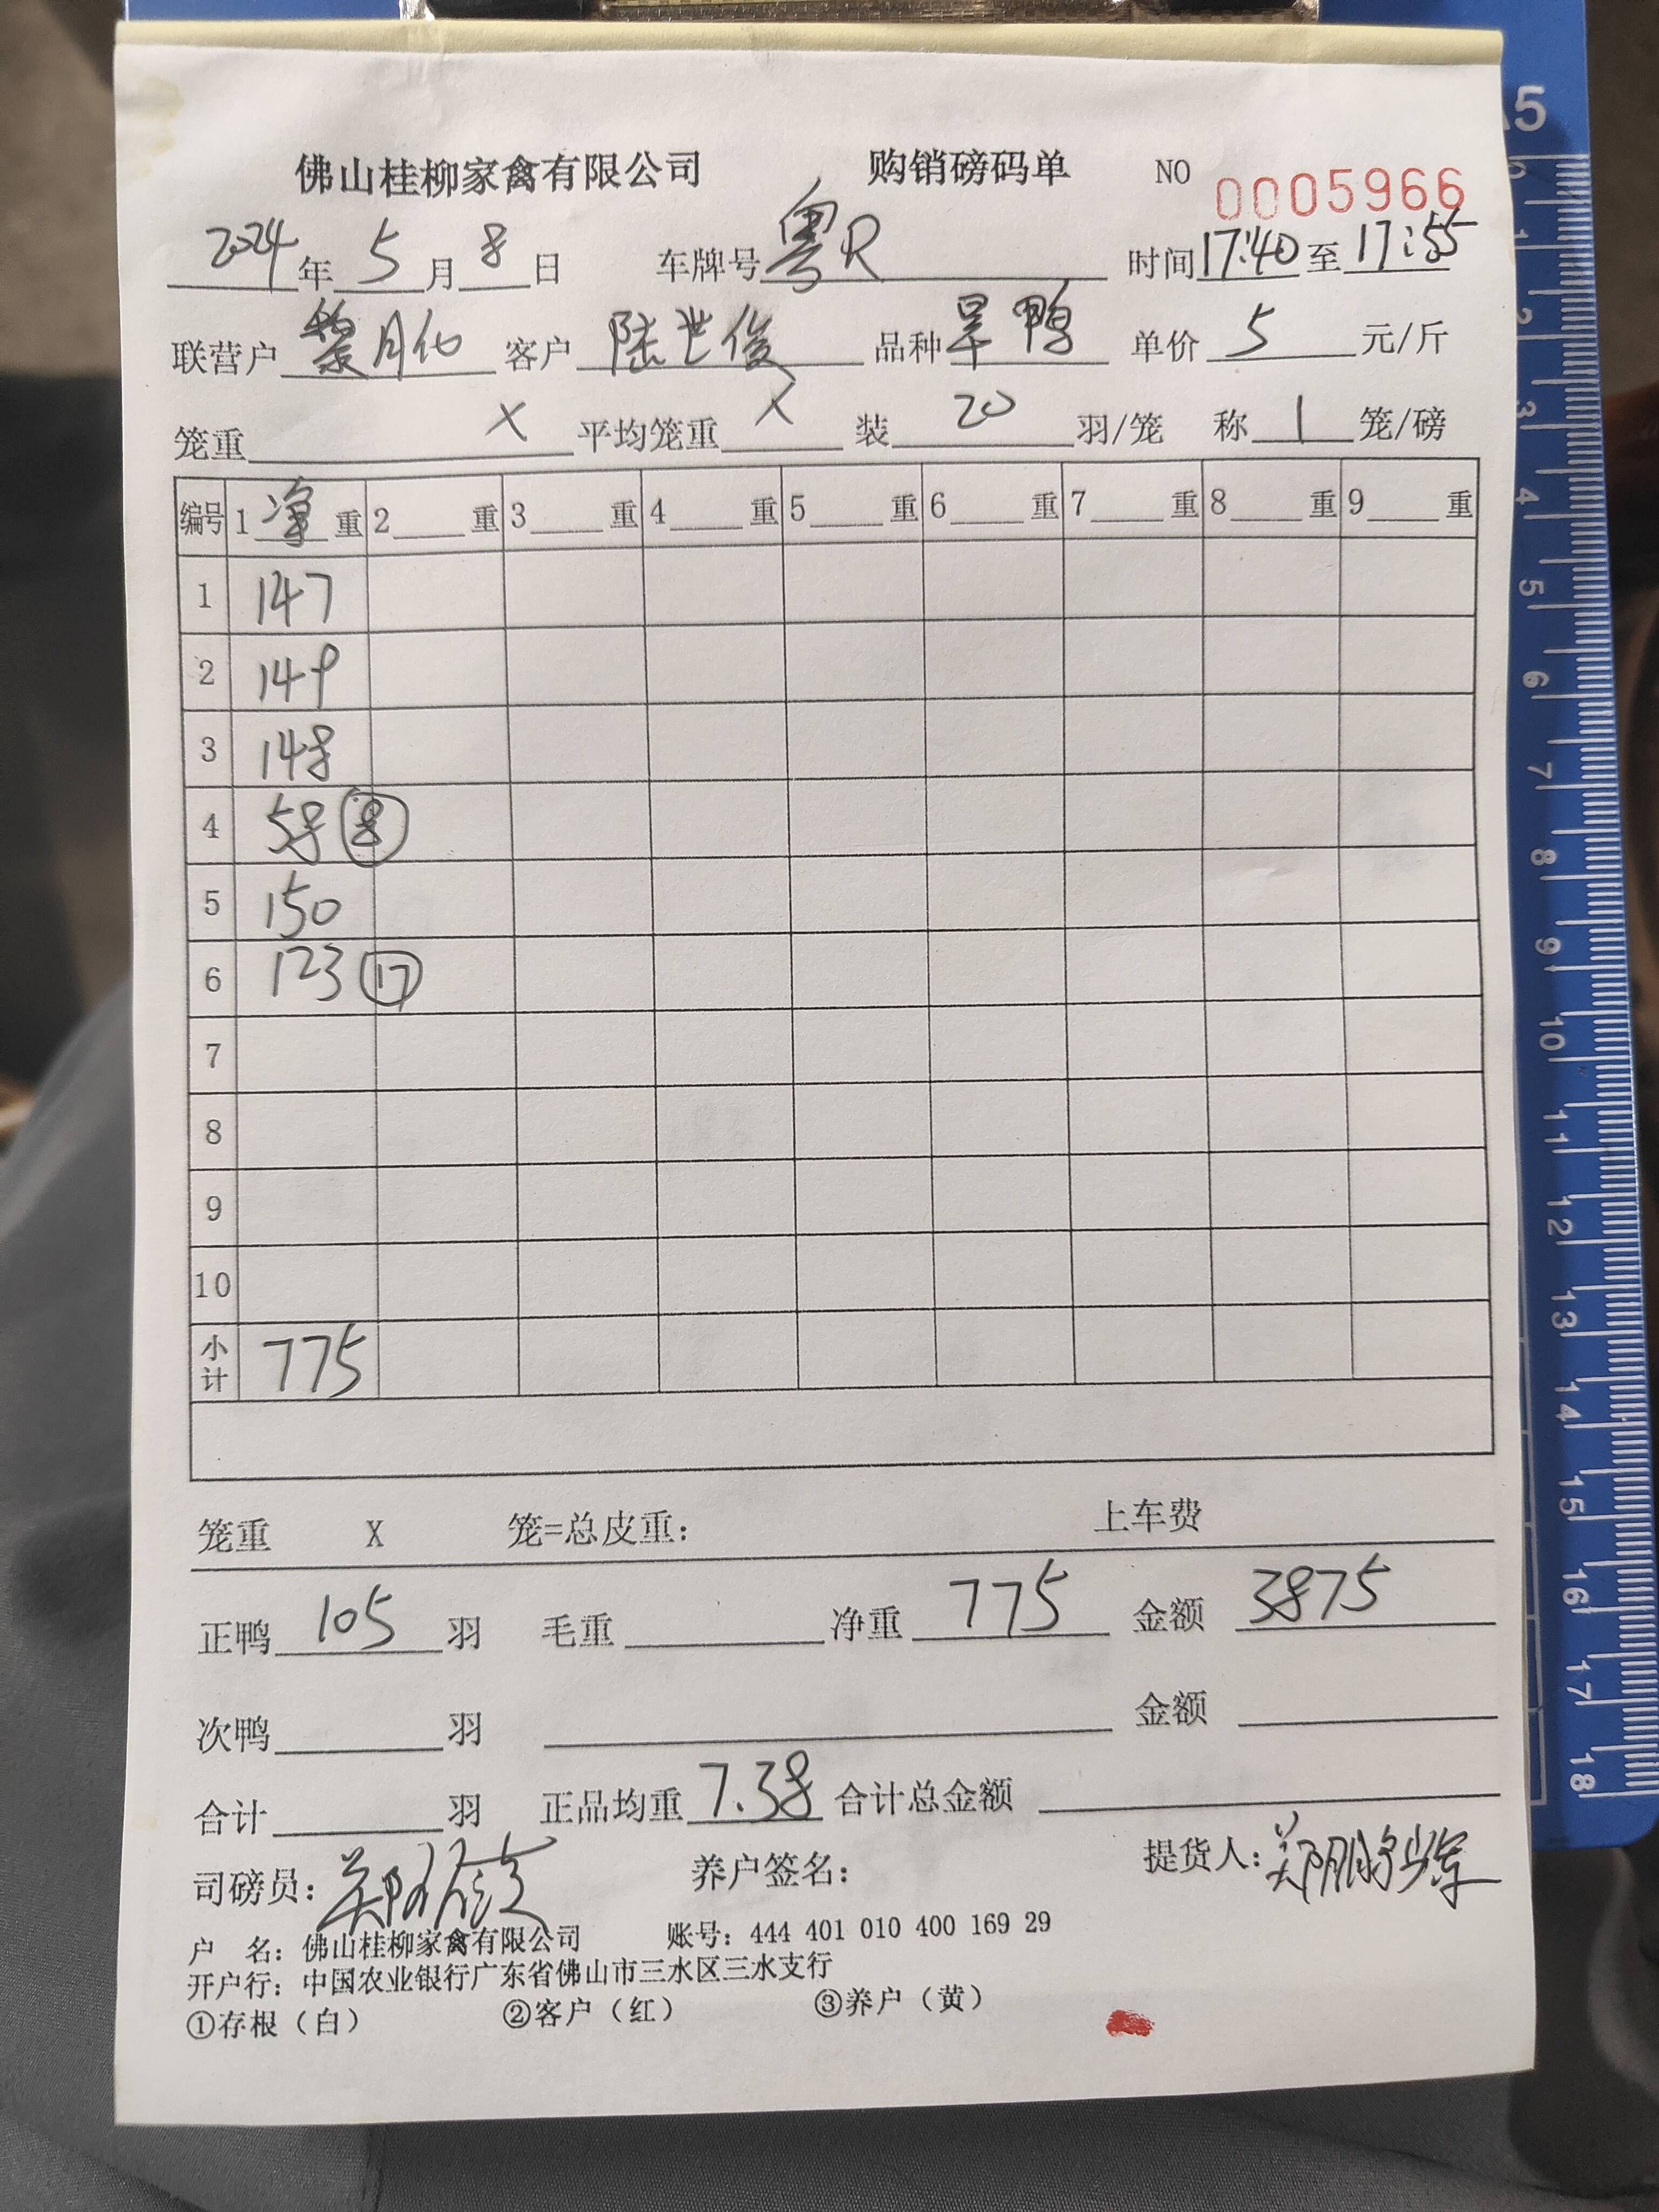 佛山桂柳家禽有限公司 购销磅码单 NO 0005966
2024年5月8日 车牌号粤R 时间17:40至17:55
联营户黎月化 客户陆世俊 品种旱鸭 单价5元/斤
笼重X 平均笼重X 装20羽/笼 称1笼/磅
编号 1净重 2重 3重 4重 5重 6重 7重 8重 9重
1 147
2 149
3 148
4 58 ⑧
5 150
6 123 ⑰
7
8
9
10
小计 775
笼重 X 笼=总皮重: 上车费
正鸭105羽 毛重 净重775 金额3875
次鸭 羽 金额
合计 羽 正品均重7.38 合计总金额
司磅员: 养户签名: 提货人:
户 名: 佛山桂柳家禽有限公司 账号: 444 401 010 400 169 29
开户行: 中国农业银行广东省佛山市三水区三水支行
①存根（白） ②客户（红） ③养户（黄）
A5
0
1
2
3
4
5
6
7
8
9
10
11
12
13
14
15
16
17
18